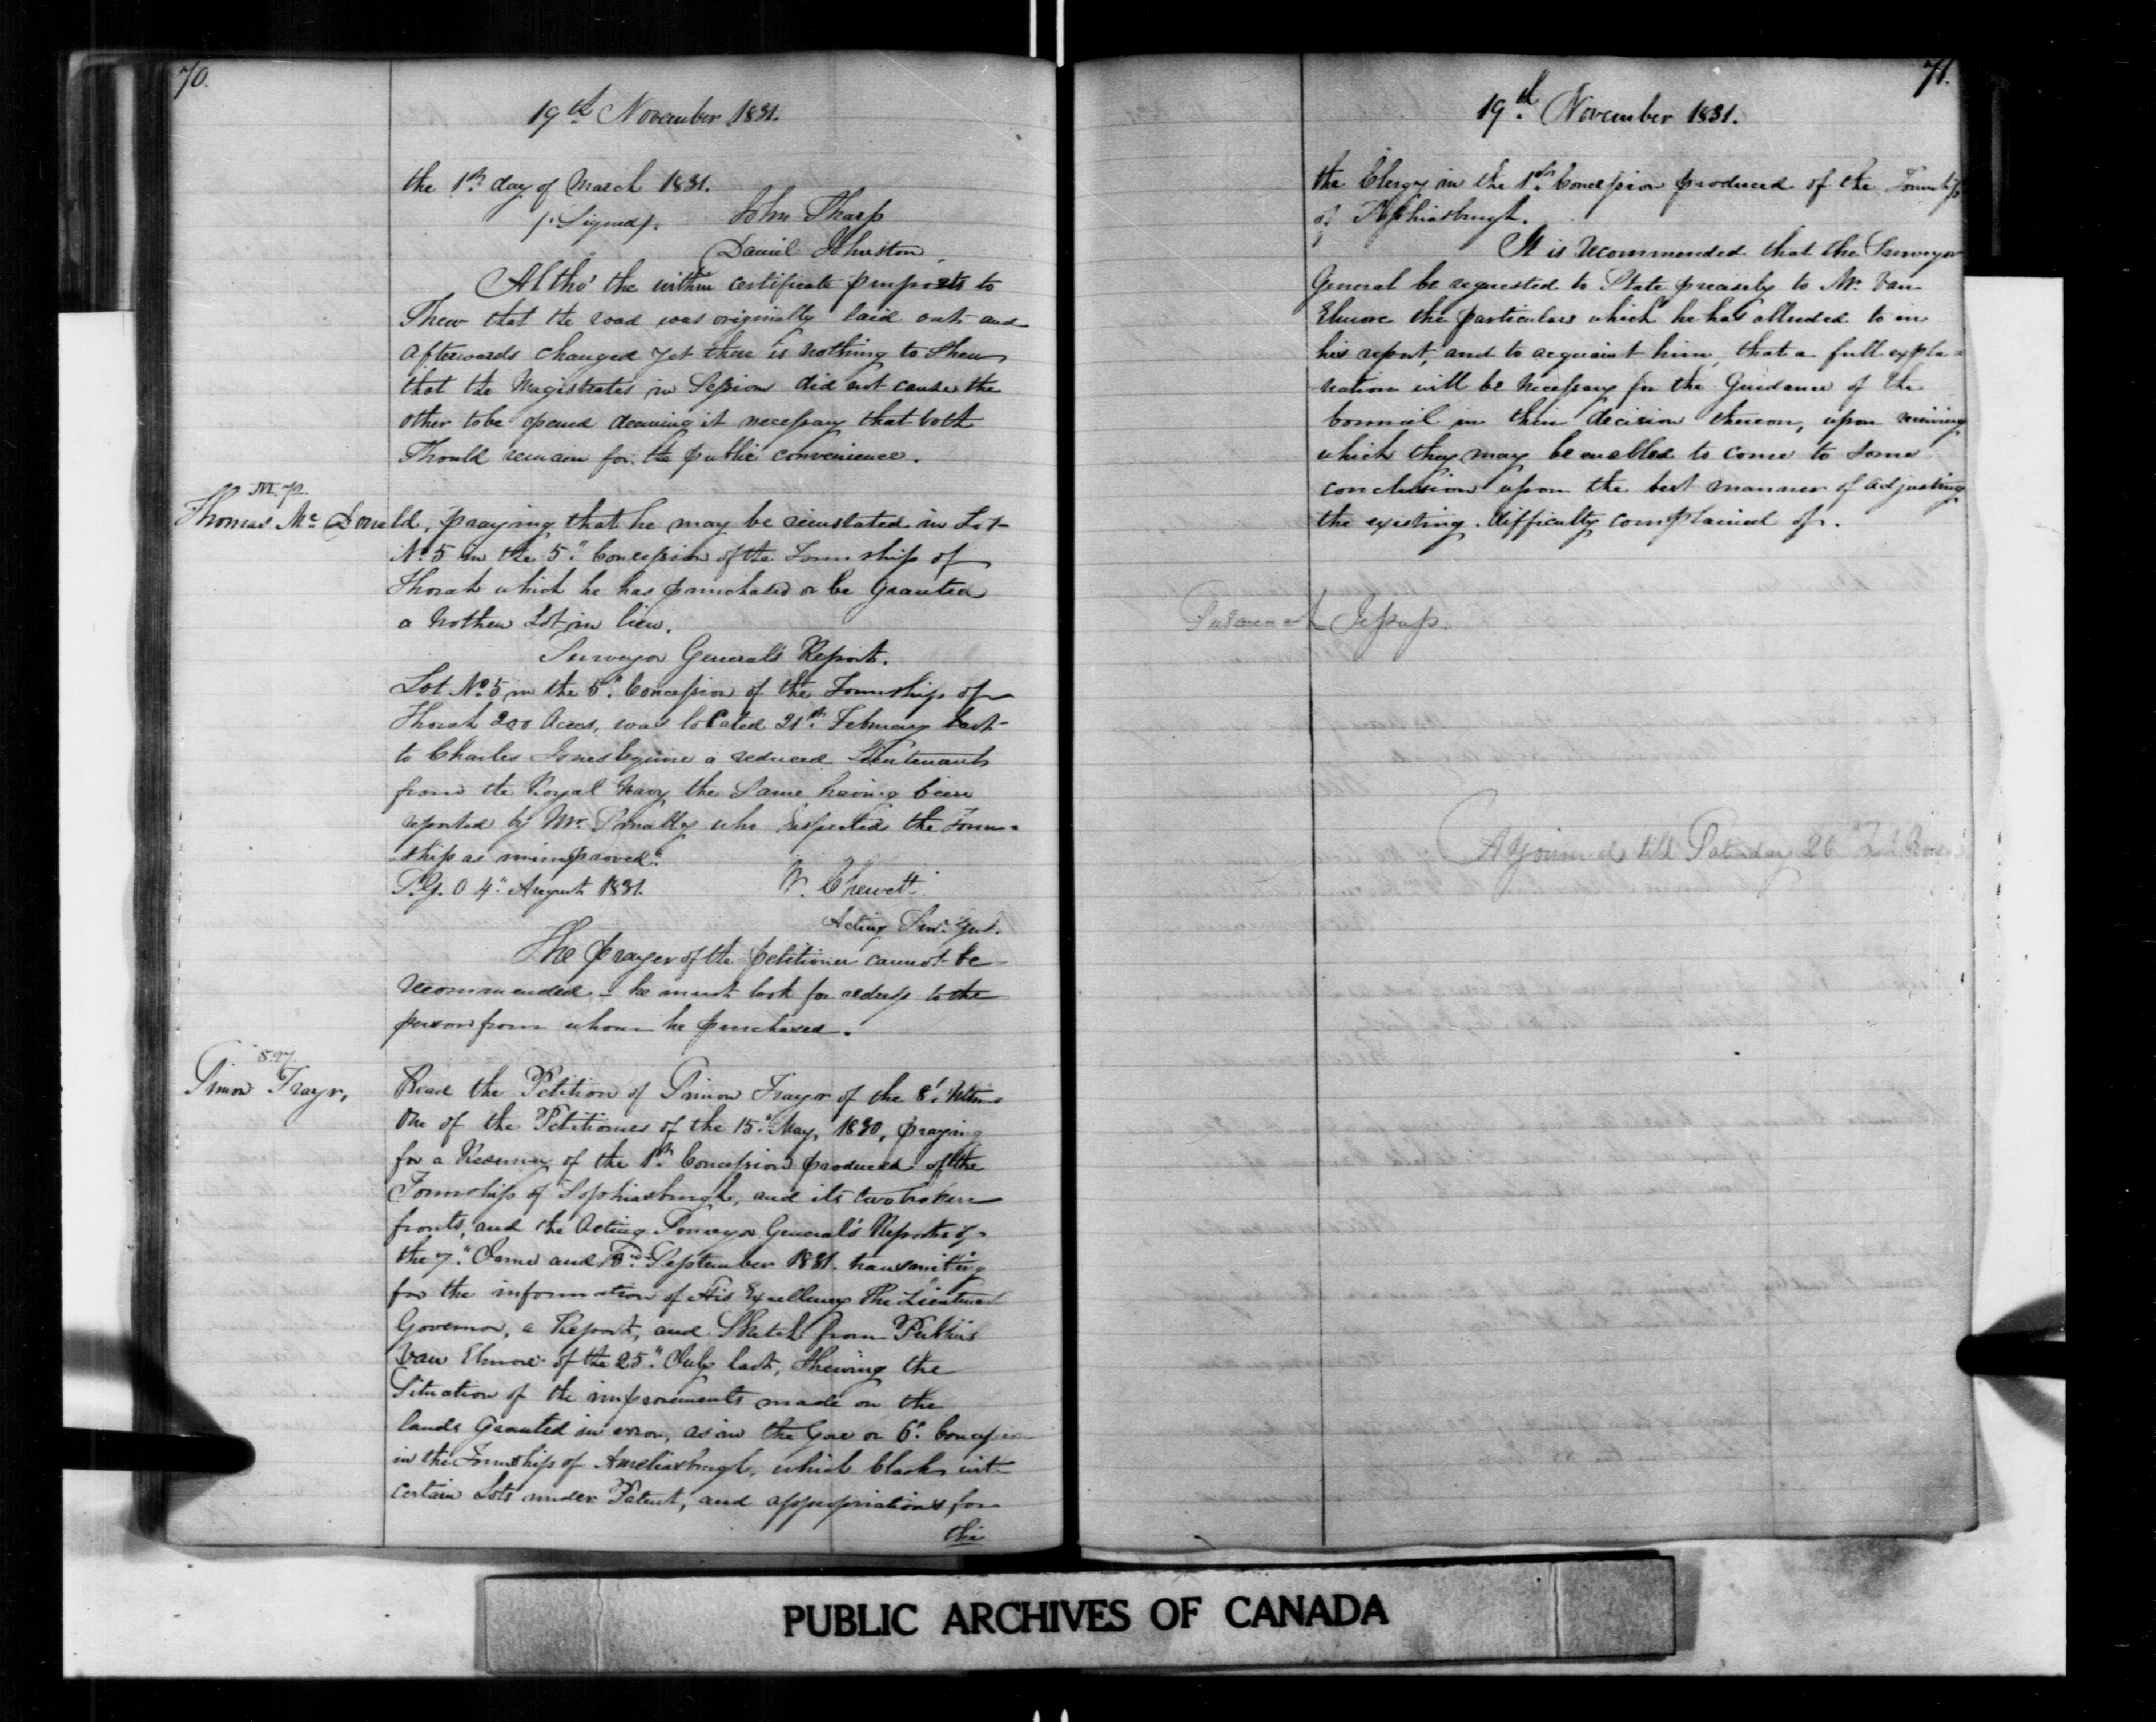 70.
19th November 1831.
the 1st day of March 1831.
(Signed). John Tharp
" Daniel Johnston
Altho' the within certificate purports to
Shew that the road was originally laid out and
afterwards changed yet there is nothing to shew
that the Magistrates in Session did not cause the
other to be opened deeming it necessary that both
Should remain for the public convenience.
M. 72.
Thomas Mc Donald, praying that he may be reinstated in Lot
No 5 in the 5" Concession of the Township of
Thorah which he has purchased or be Granted
a nother Lot in lieu.
Surveyor General's Report.
Lot No 5 in the 5" Concession of the Township of
Thorah 200 Acres, was located 21st February last
to Charles a reduced Lieutenant
from the Royal Navy the Same having been
reported by Mr. Smalley who Inspected the Town=
ship as unimproved.
S.G.O 4" August 1831. W. Chewett
Acting Sur. Genl.
The prayer of the petitioner cannot be
recommended - he must look for redress to the
person from whom he purchased.
S. 27.
Simon Frayr,
Read the Petition of Simon Frayr of the 8' Ultimo
One of the Petitioners of the 15" May, 1830, praying
for a Resurvey of the 1st Concession produced of the
Township of Sophiasburgh, and its two broken
fronts, and the Acting Surveyor General's Reports of
the 7" June and 3rd September 1831. transmitting
for the information of His Excellency The Lieutenant
Governor, a Report, and Sketch from Publius
Van Elmore of the 25" July last, Shewing the
Situation of the improvements made on the
lands Granted in error, as in the Gore or 6" Concession
in the Township of Ameliasburgh, which clash with
certain Lots under Patent, and appropriations for
the
71.
19th November 1831.
the Clergy in the 1st Concession produced of the Township
of Sophiasburgh.
It is recommended that the Surveyor
General be requested to State precisely to Mr. Van
Elmore the particulars which he has alluded to in
his report, and to acquaint him, that a full expla=
nation will be necessary for the Guidance of the
Council in their decision thereon, upon receiving
which they may be enabled to come to Some
conclusion upon the best manner of adjusting
the existing difficulty complained of.
Susannah Jessup.
Adjourned till Saturday 26"
PUBLIC ARCHIVES OF CANADA